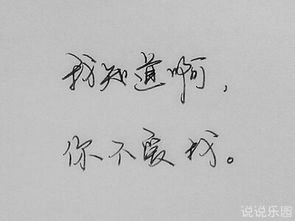 我知道啊，
你不爱我。
说说乐园